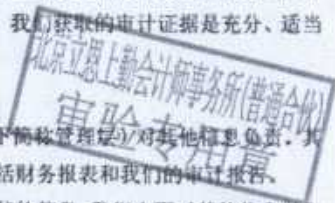 我们获取的审计证据是充分、适当
北京立思上勤会计师事务所(普通合伙)
审验专用章
下简称管理层)对其他信息负责。其
括财务报表和我们的审计报告。